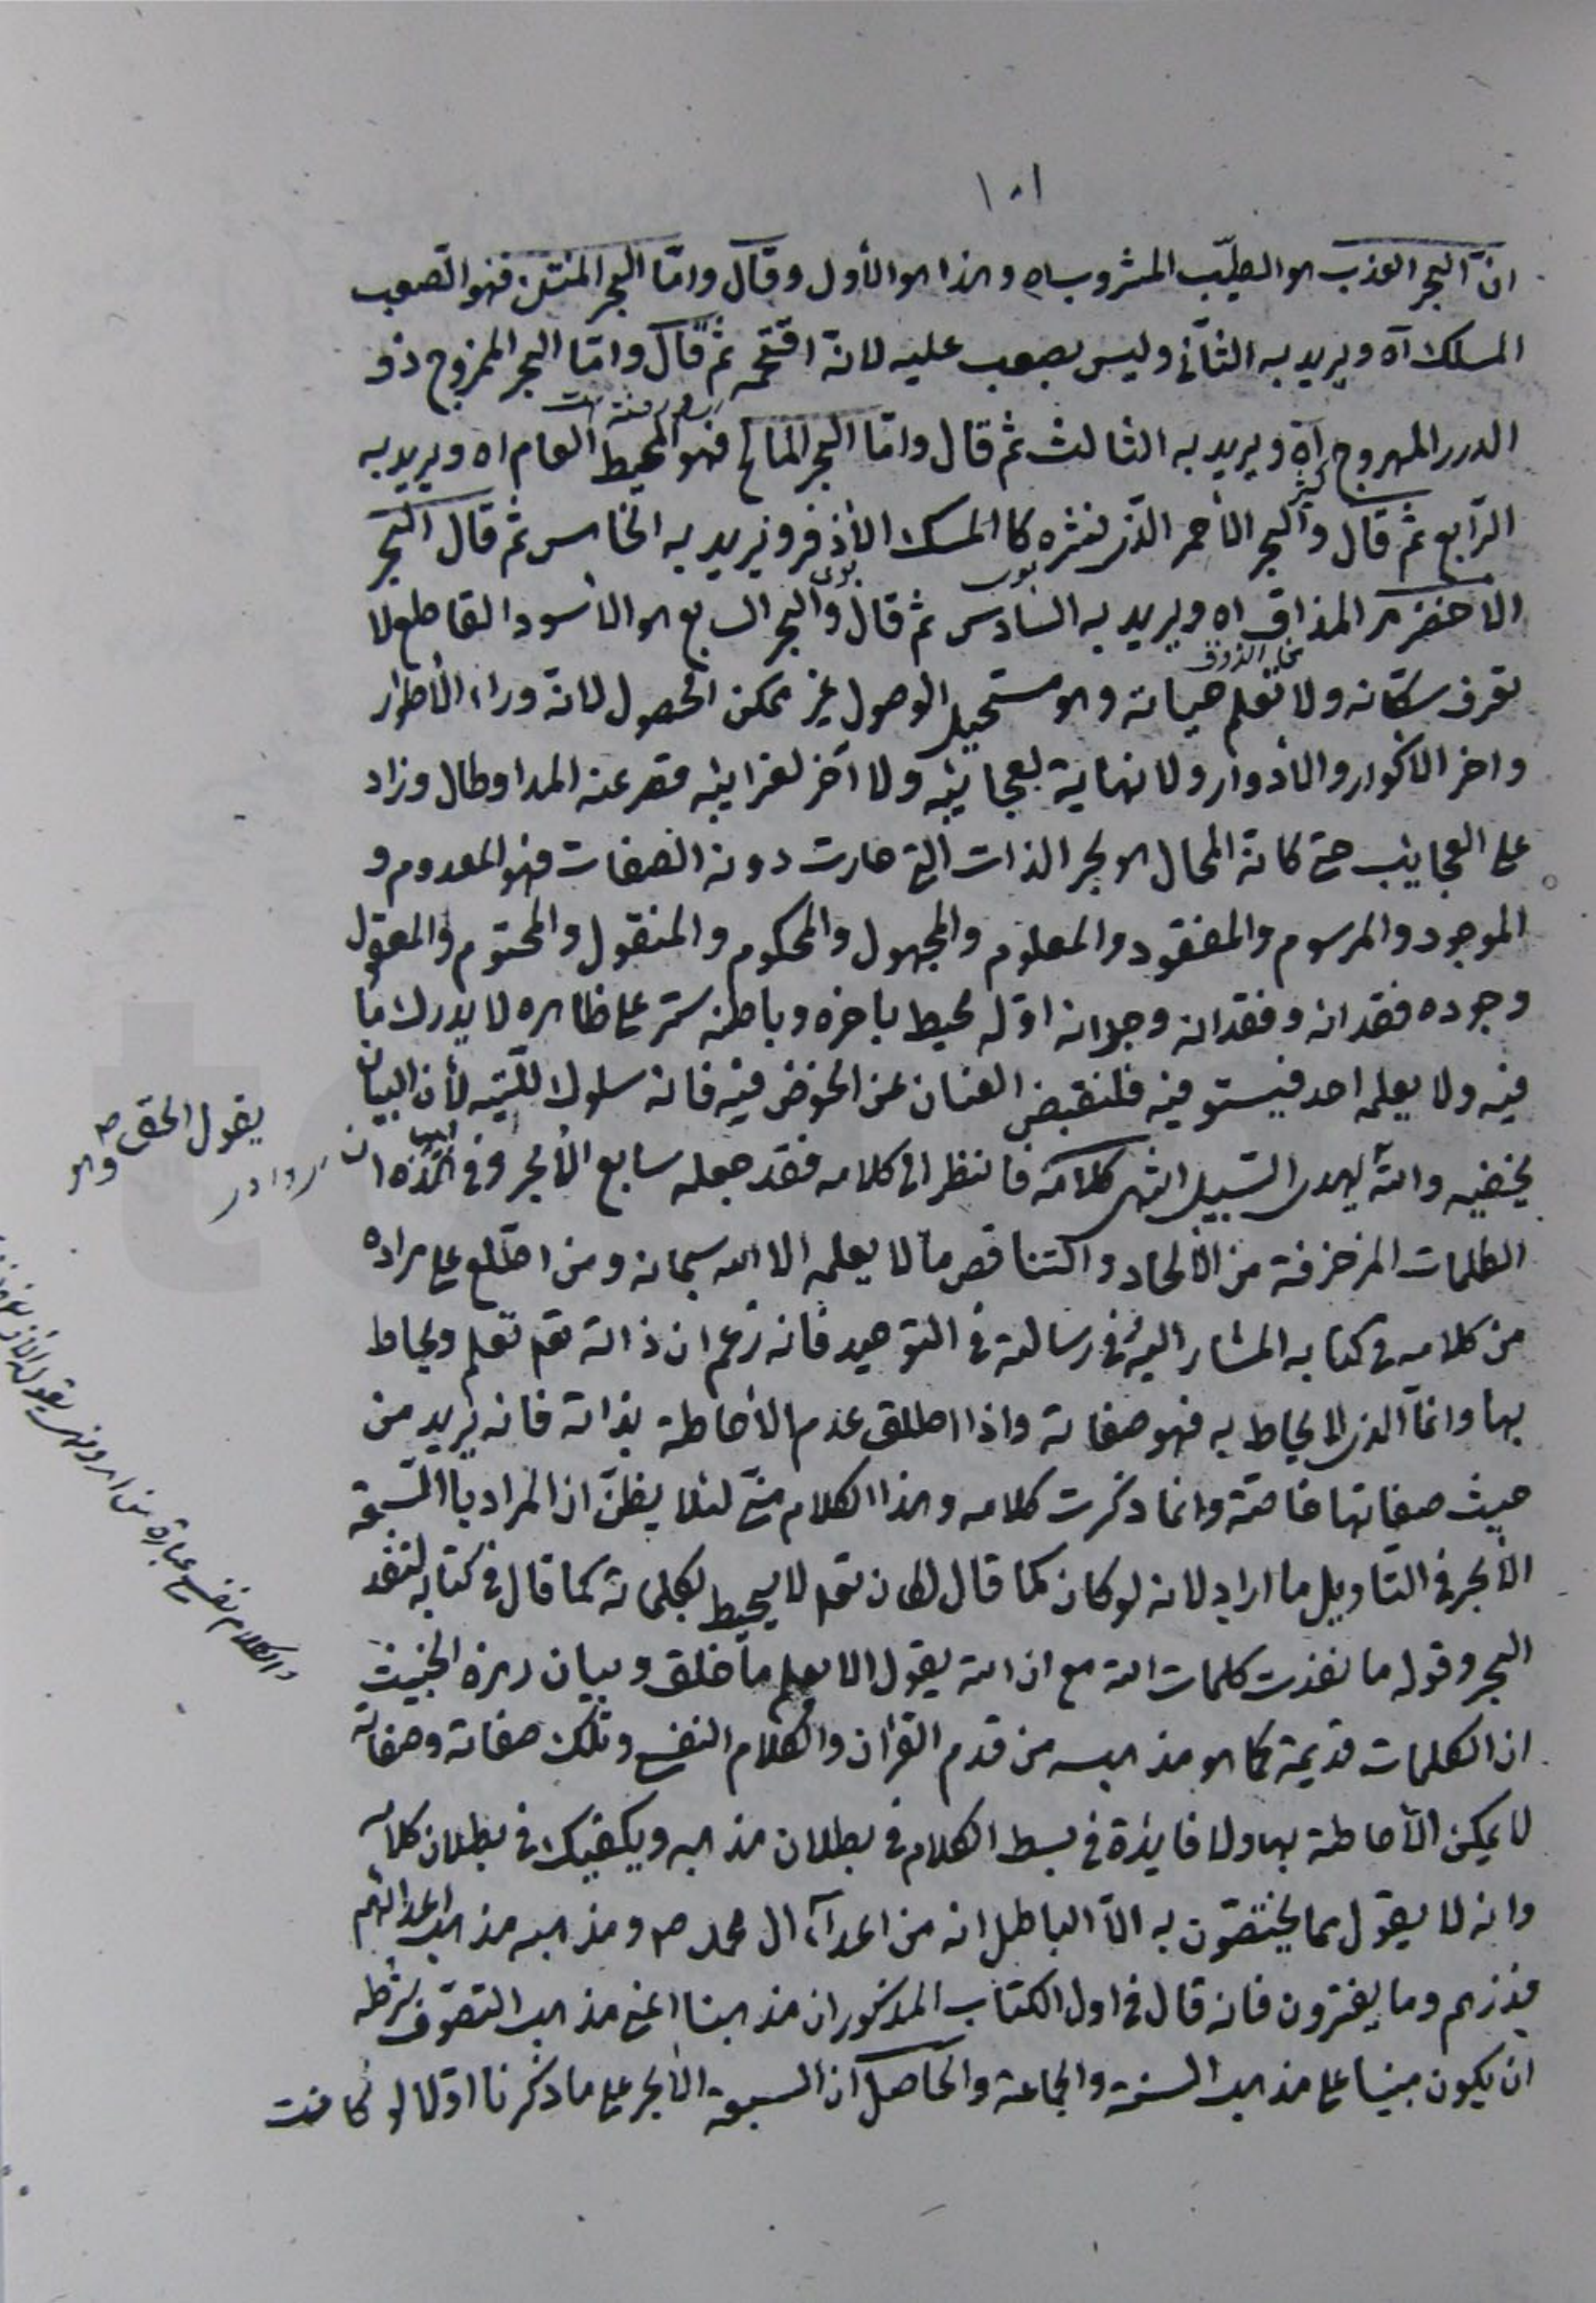 ١٠١
ان البحر العذب هو الطيّب المشروب اه وهذا هو الأول وقال وامّا البحر المنتن فهو الصعب
المسلك آه ويريد به الثاني وليس بصعب عليه لانه اقتحمه ثم قال وامّا البحر الممزوج ذو
الدرر المهروج آه ويريد به الثالث ثم قال وامّا البحر المالح فهو المحيط العام اه ويريد به
الرّابع ثم قال والبحر الأحمر الذى نشره كالمسك الأذفر ويريد به الخامس ثم قال البحر
الاخضر مر المذاق اه ويريد به السّادس ثم قال والبحر السابع هو الأسود القاطع لا
تعرف سكّانه ولا تعلم حيتانه وهو مستحيل الوصول غير ممكن الحصول لانه وراء الأطوار
واخر الاكوار والأدوار ولا نهاية لعجايبه ولا آخر لغرايبه قصر عنه المدا وطال وزاد
على العجايب حتى كانه المحال هو بحر الذات التى حارت دونه الصفات فهو المعدوم و
الموجود والمرسوم والمفقود والمعلوم والمجهول والمحكوم والمنقول والمحتوم والمعقول
وجوده فقدانه وفقدانه وجدانه اوّله محيط باخره وباطنه ستر على ظاهره لا يدرك ما
فيه ولا يعلمه احد فيستوفيه فلنقبض العنان عن الخوض فيه فانه سلوك للتيه لأن البيان
يخفيه والله يهدى السّبيل انتهى كلامه فانظر الى كلامه فقد جعله سابع الأبحر وفى هذه
الكلمات المزخرفة من الألحاد والتناقص مالا يعلمه الا الله سبحانه ومن اطّلع على مراده
من كلامه فى كتابه المشار اليه وفى رسالته فى التوحيد فانه زعم ان ذاته تعم تعلم ويحاط
بها وانمّا الذى لا يحاط به فهو صفاته واذا اطلق عدم الأحاطة بذاته فانه يريد من
حيث صفاتها خاصّة وانما ذكرت كلامه وهذا الكلام منّى لئلا يظنّ ان المراد بالسّبعة
الأبحر فى التاويل ما اراد لانه لو كان كما قال لكان تعم لا يحيط بكلماته كما قال فى كتابه لنفد
البحر وقوله ما نفدت كلمات الله مع ان الله يقول الا يعلم من خلق وبيان رمزه الخبيث
ان الكلمات قديمة كما هو مذهبه من قدم القرآن والكلام النفسى وتلك صفاته وصفاته
لا يمكن الأحاطة بها ولا فايدة فى بسط الكلام فى بطلان مذهبه ويكفيك فى بطلان كلامه
وانه لا يقول بما يختصّون به الّا الباطل انه من اعدآء ال محمد ص ومذهبه مذهب اعدائهم
فذرهم وما يفترون فانه قال فى اول الكتاب المذكور ان مذهبنا اعنى مذهب التصوّف شرطه
ان يكون مبنيا على مذهب السنة والجماعة والحاصل ان السبعة الأبحر على ما ذكرنا اوّلا لو كانت
يقول الحق ص وهو
والكلام نفسى عبارة عن